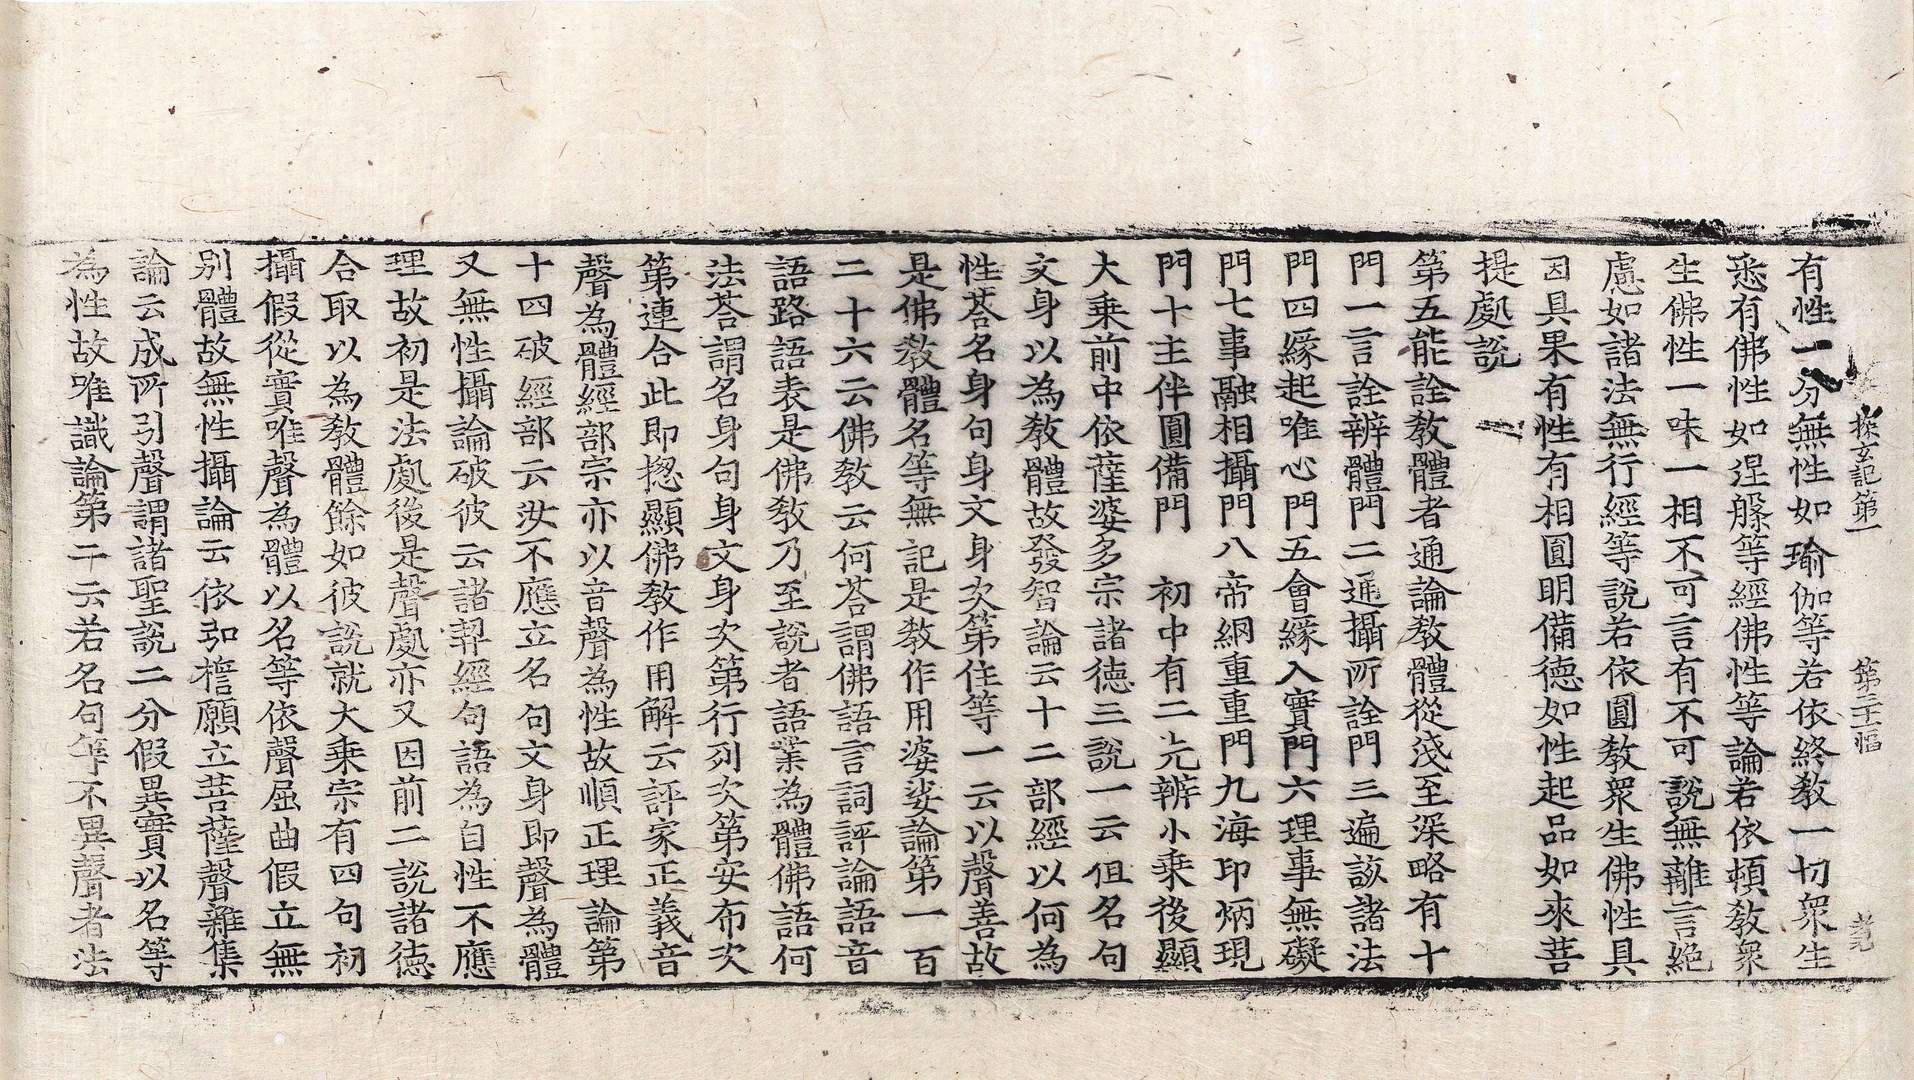 探玄記第一 第二十幅
有性一分無性如瑜伽等若依終教一切衆生
悉有佛性如涅槃等經佛性等論若依頓教衆
生佛性一味一相不可言有不可說無離言絕
慮如諸法無行經等說若依圓教衆生佛性具
因具果有性有相圓明備德如性起品如來菩
提處說
第五能詮教體者通論教體從淺至深略有十
門一言詮辨體門二通攝所詮門三遍該諸法
門四緣起唯心門五會緣入實門六理事無礙
門七事融相攝門八帝網重重門九海印炳現
門十主伴圓備門 初中有二先辨小乘後顯
大乘前中依薩婆多宗諸德三說一云但名句
文身以為教體故發智論云十二部經以何為
性荅名身句身文身次第住等一云以聲善故
是佛教體名等無記是教作用婆娑論第一百
二十六云佛教云何荅謂佛語言詞評論語音
語路語表是佛教乃至說者語業為體佛語何
法荅謂名身句身文身次第行列次第安布次
第連合此即揔顯佛教作用解云評家正義音
聲為體經部宗亦以音聲為性故順正理論第
十四破經部云汝不應立名句文身即聲為體
又無性攝論破彼云諸契經句語為自性不應
理故初是法處後是聲處亦又因前二說諸德
合取以為教體餘如彼說就大乘宗有四句初
攝假從實唯聲為體以名等依聲屈曲假立無
別體故無性攝論云依弘檐願立菩薩聲雜集
論云成所引聲謂諸聖說二分假異實以名等
為性故唯識論第二云若名句等不異聲者法